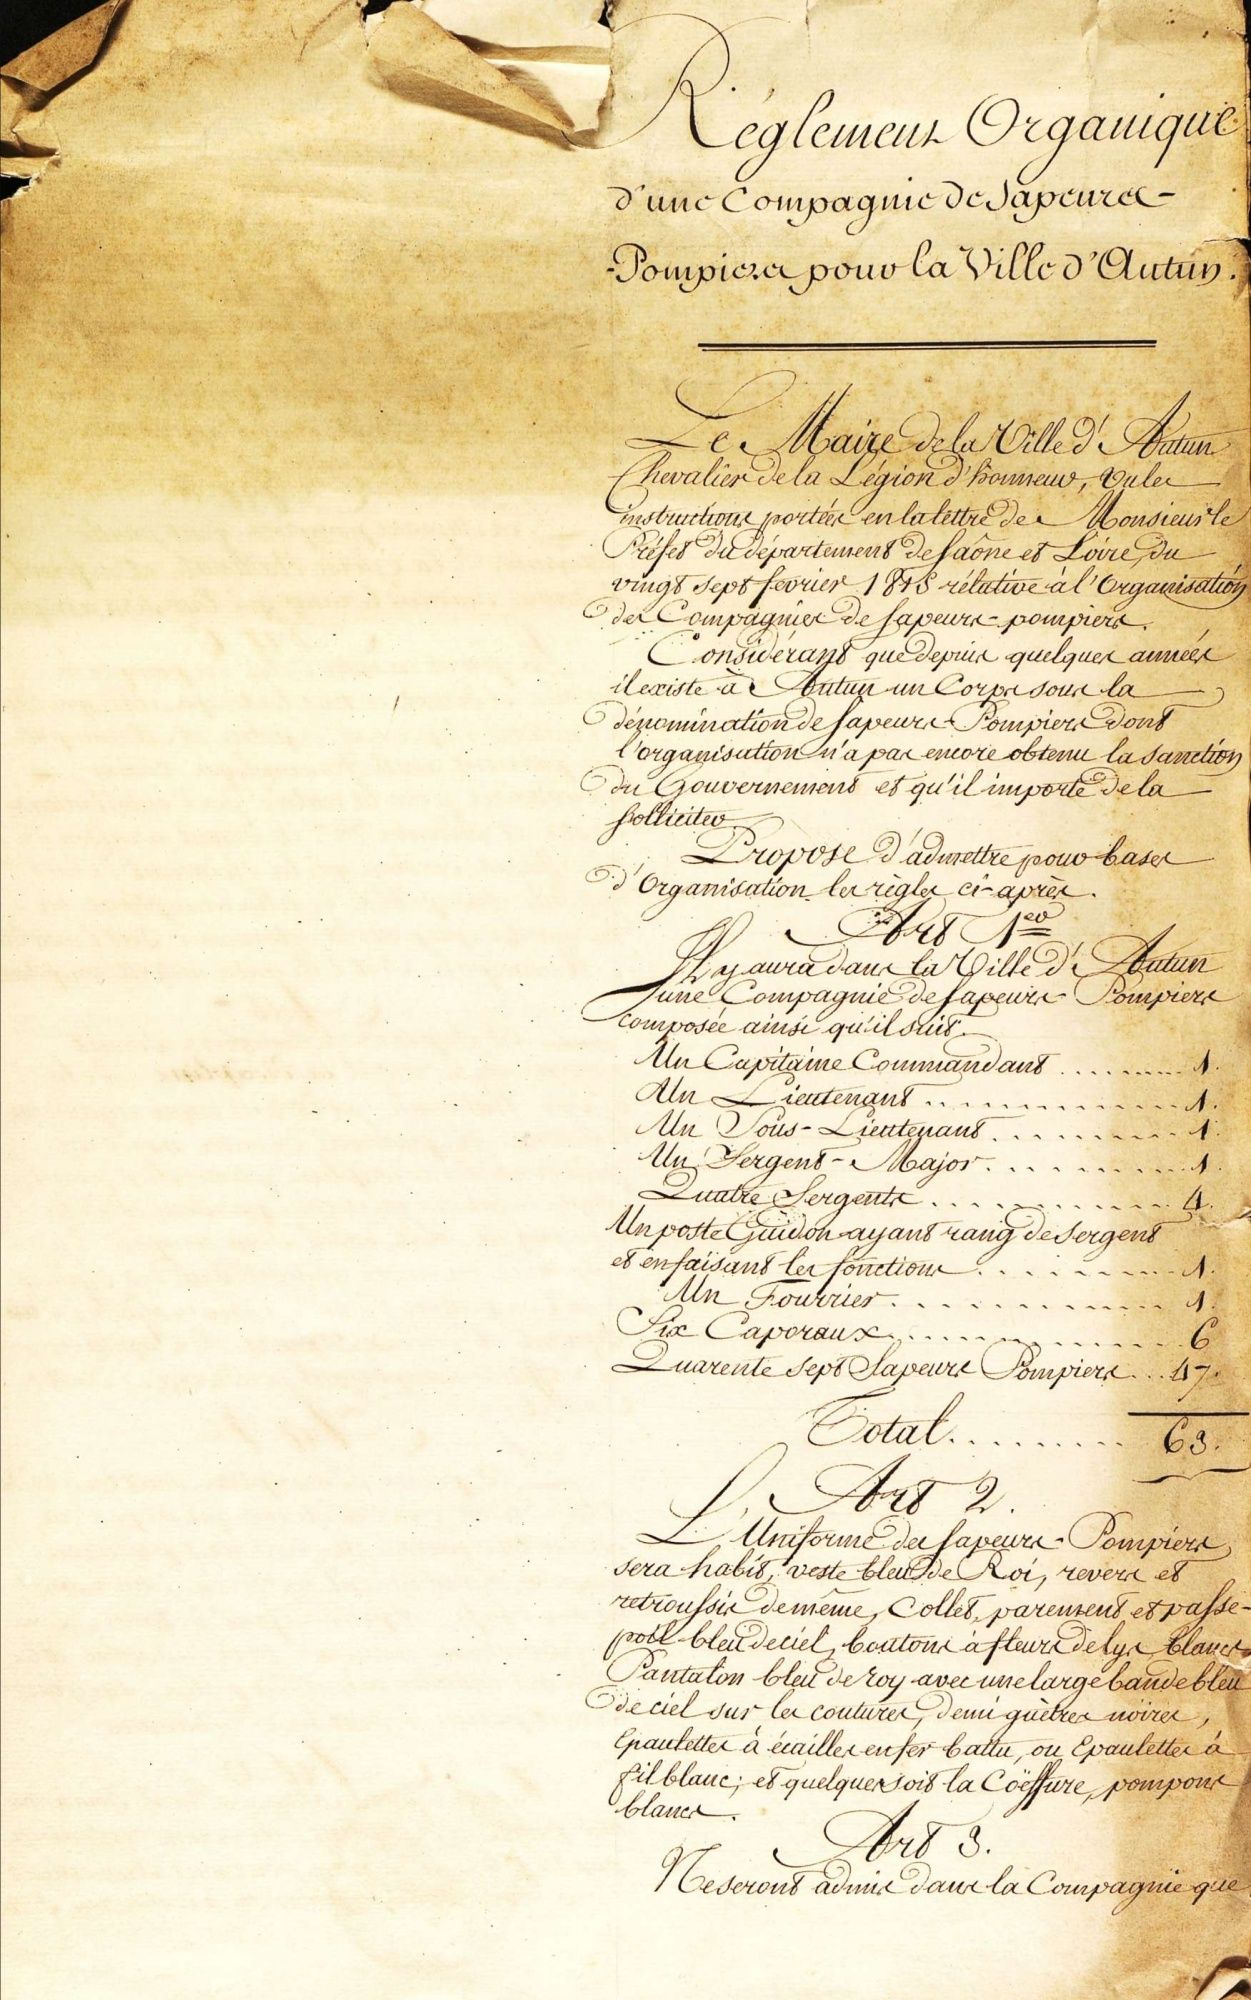 Réglement Organique
d'une Compagnie de Sapeurs-
-Pompiers pour la Ville d'Autun.
Le Maire de la Ville d'Autun
Chevalier de la Légion d'honneur, vu les
instructions portées en la lettre de Monsieur le
Préfet du département de Saône et Loire, du
vingt sept fevrier rélative à l'Organisation
des Compagnies de sapeurs-pompiers.
Considérant que depuis quelques années
il existe à Autun un Corps sous la
dénomination de sapeurs-Pompiers dont
l'organisation n'a pas encore obtenu la sanction
du Gouvernement et qu'il importe de la
solliciter
Propose d'admettre pour bases
d'Organisation les règles ci-après.
Art 1er
Il y aura dans la Ville d'Autun
une Compagnie de sapeurs-Pompiers
composée ainsi qu'il suit.
Un Capitaine Commandant ........ 1.
Un Lieutenant ........ 1.
Un Sous-Lieutenant ........ 1
Un Sergent-Major ........ 1.
Quatre Sergents ........ 4.
Un poste Guidon ayant rang de sergent
et en faisant les fonctions ........ 1.
Un Fourrier ........ 1.
Six Caporaux ........ 6
Quarente sept Sapeurs Pompiers ... 47.
Total ........ 63.
Art 2.
L'Uniforme des sapeurs-Pompiers
sera habit, veste bleu de Roi, revers et
retroussis de même, Collet, parement et passe-
poil bleu de ciel, boutons à fleurs de lys blancs
Pantalon bleu de roy avec une large bande bleu
de ciel sur les coutures, demi guètres noires,
Epaulettes à écailles en fer battu, ou Epaulettes à
fil blanc; et quelque soit la Coëffure, pompons
blancs.
Art 3.
Ne seront admis dans la Compagnie que